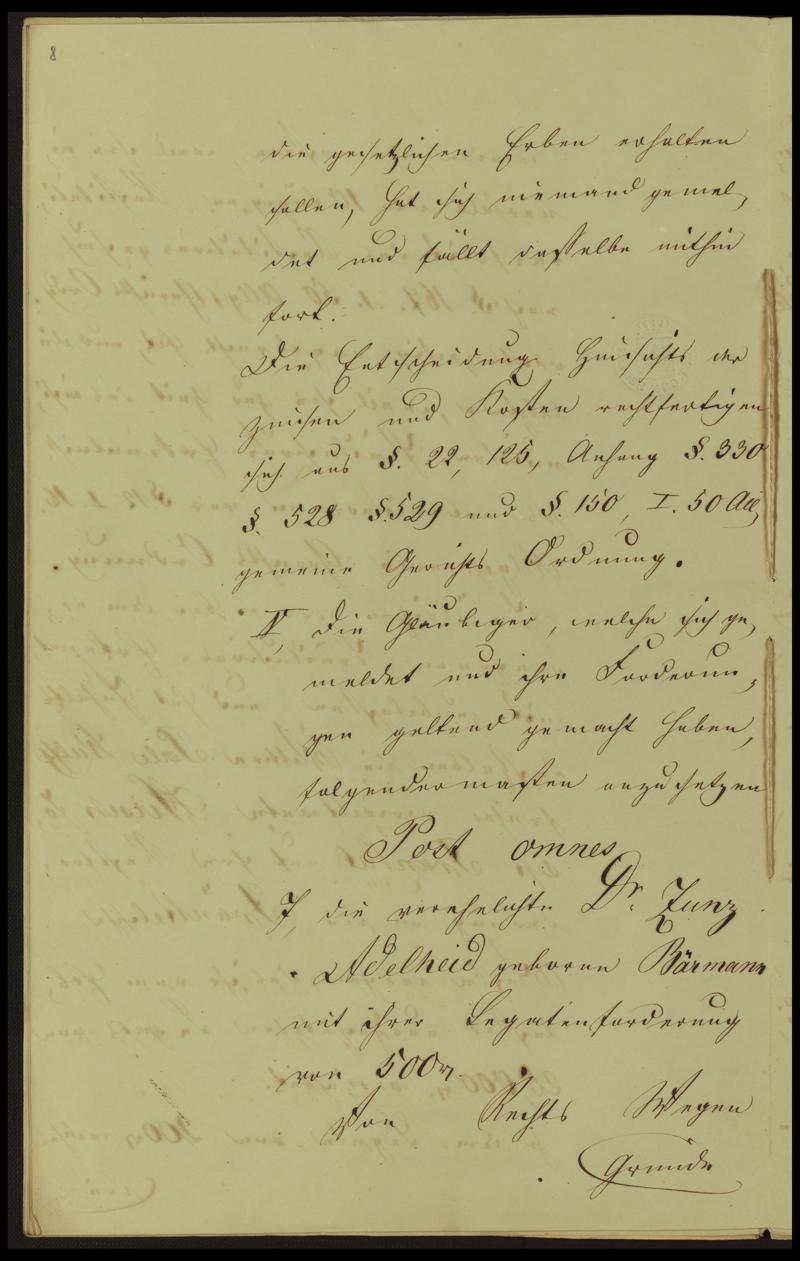 8
die gesetzlichen Erben erhalten
sollen, hat sich niemand gemel,
det und fällt dasselbe mithin
fort.
Die Entscheidung Hinsichts der
Zinsen und Kosten rechtfertigen
sich aus §. 22, 125, Anhang §. 330
§. 528 §. 529 und §. 150, I. 50 All,
gemeine Gerichts Ordnung.
V, Die Gläubiger, welche sich ge,
meldet und ihre Forderun,
gen geltend gemacht haben,
folgendermaßen anzusetzen
Post omnes
7, die verehelichte Dr. Zunz
Adelheid geborne Bärmann
mit ihrer Legatenforderung
von 500 r.
Von Rechts Wegen
Gründe